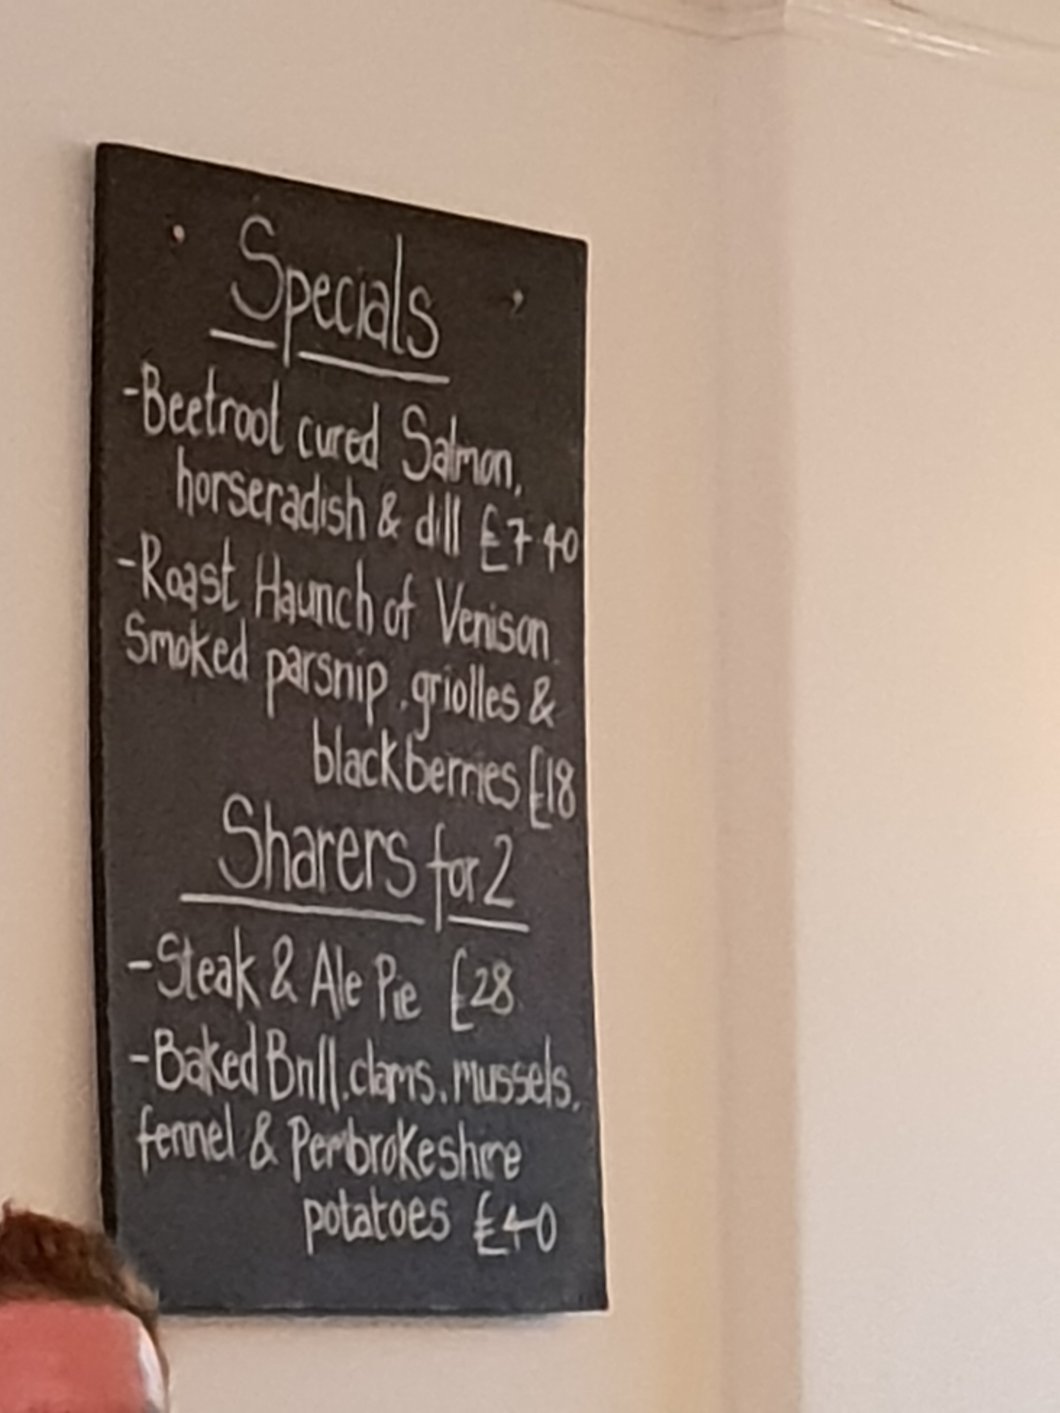 Specials
-Beetroot cured Salmon,
horseradish & dill £7.40
-Roast Haunch of Venison
Smoked parsnip, griolles &
blackberries £18
Sharers for 2
-Steak & Ale Pie £28
-Baked Brill, clams, mussels,
fennel & Pembrokeshire
potatoes £40